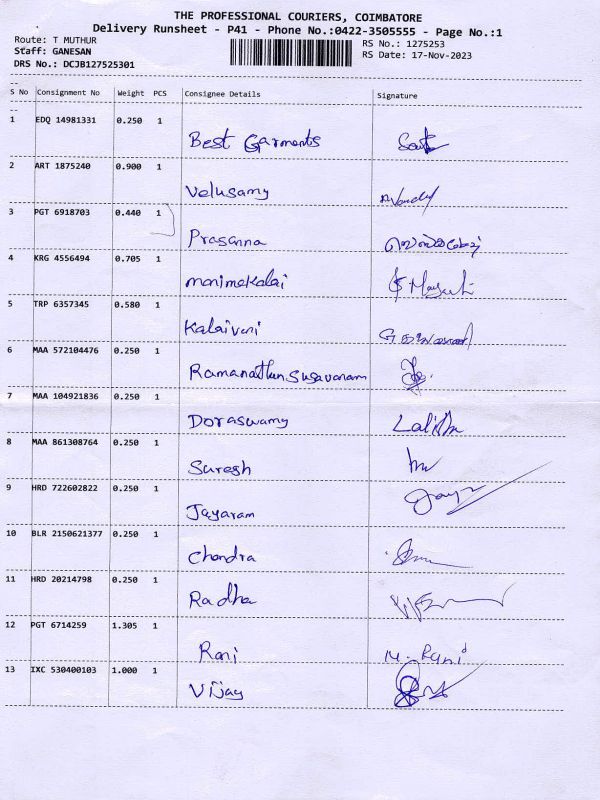 THE PROFESSIONAL COURIERS, COIMBATORE
Delivery Runsheet - P41 - Phone No.:0422-3505555 - Page No.:1
Route: T MUTHUR RS No.: 1275253
Staff: GANESAN RS Date: 17-Nov-2023
DRS No.: DCJB127525301
S No Consignment No Weight PCS Consignee Details Signature
1 EDQ 14981331 0.250 1
Best Garments
2 ART 1875240 0.900 1
Velusamy
3 PGT 6918703 0.440 1
Prasanna
4 KRG 4556494 0.705 1
manimekalai
5 TRP 6357345 0.580 1
Kalaivani
6 MAA 572104476 0.250 1
Ramanathan
7 MAA 104921836 0.250 1
Doraswamy Lalitha
8 MAA 861308764 0.250 1
Suresh
9 HRD 722602822 0.250 1
Jayaram
10 BLR 2150621377 0.250 1
Chandra
11 HRD 20214798 0.250 1
Radha
12 PGT 6714259 1.305 1
Rani M. Rani
13 IXC 530400103 1.000 1
Vijay